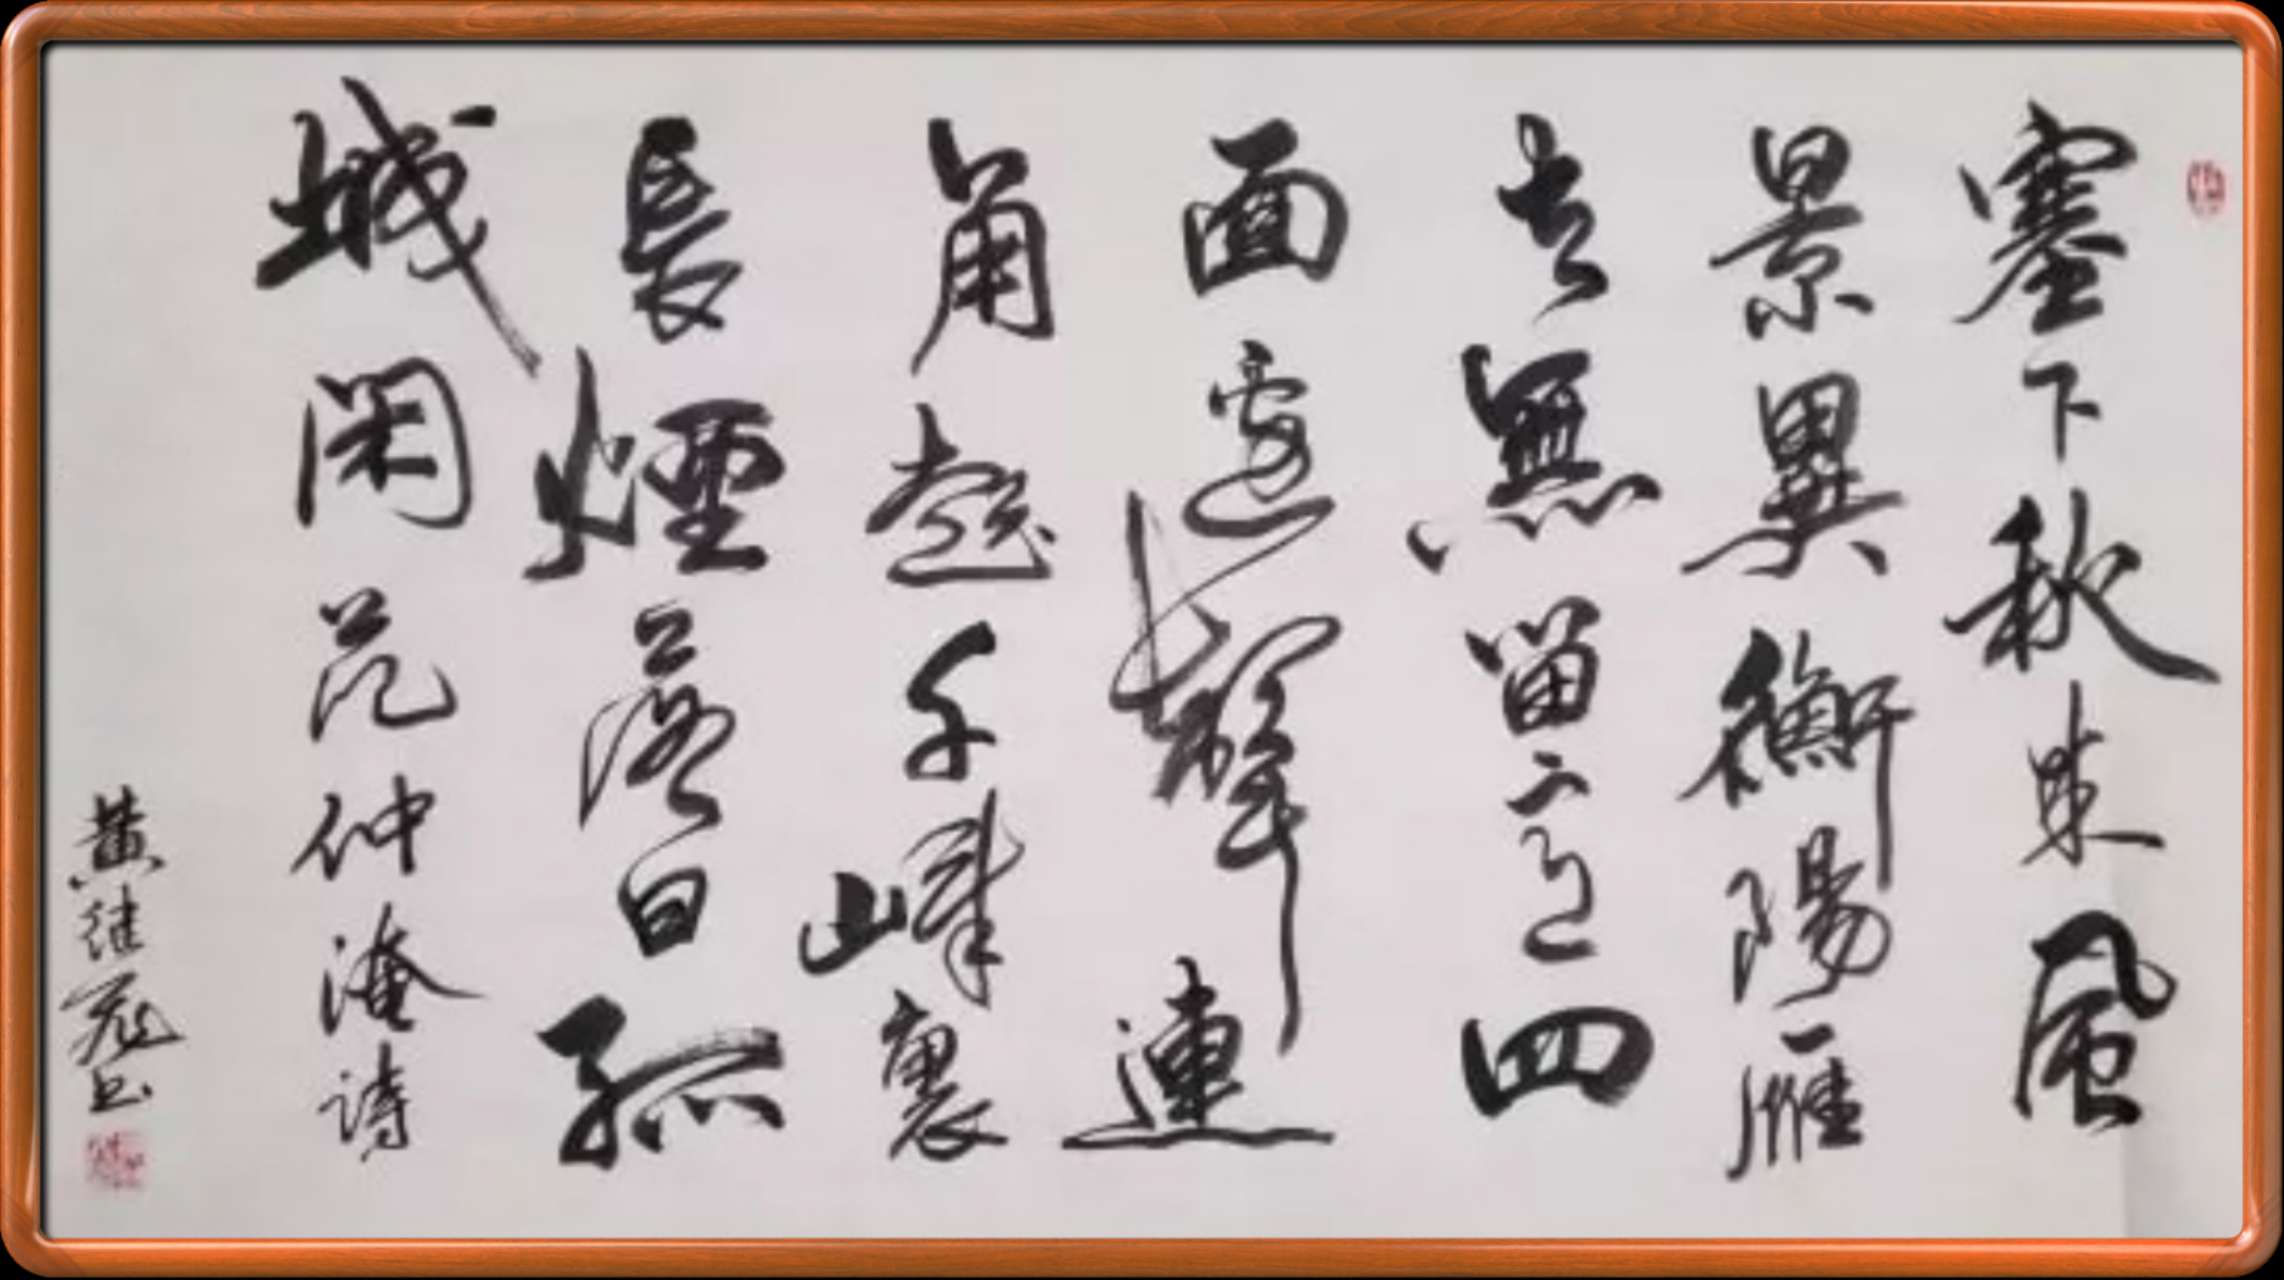 塞下秋来風
景異衡陽雁
去無留意四
面邊聲連
角起千峰裏
長煙落日孤
城閉范仲淹詩
黄继冠书